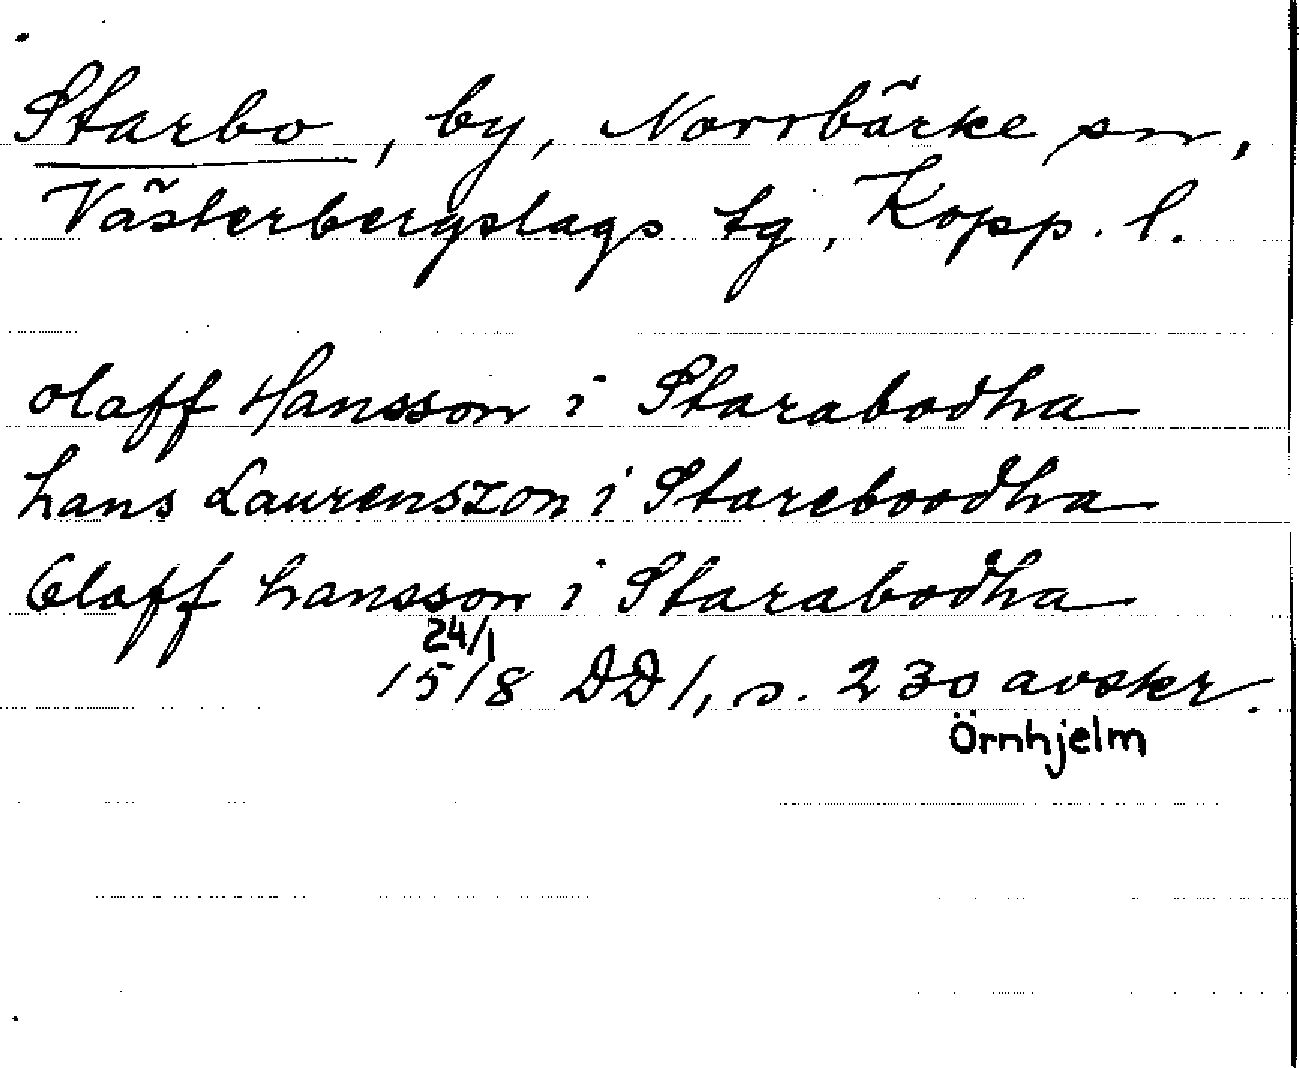 Starbo, by, Norrbärke sn,
Västerbergslags tg, Kopp. l.
olaff Hansson i Starabodha
hans Laurenszon i Stareboodha
Olaff hansson i Starabodha
24/1
1518 DD 1, s. 230 avskr.
Örnhjelm